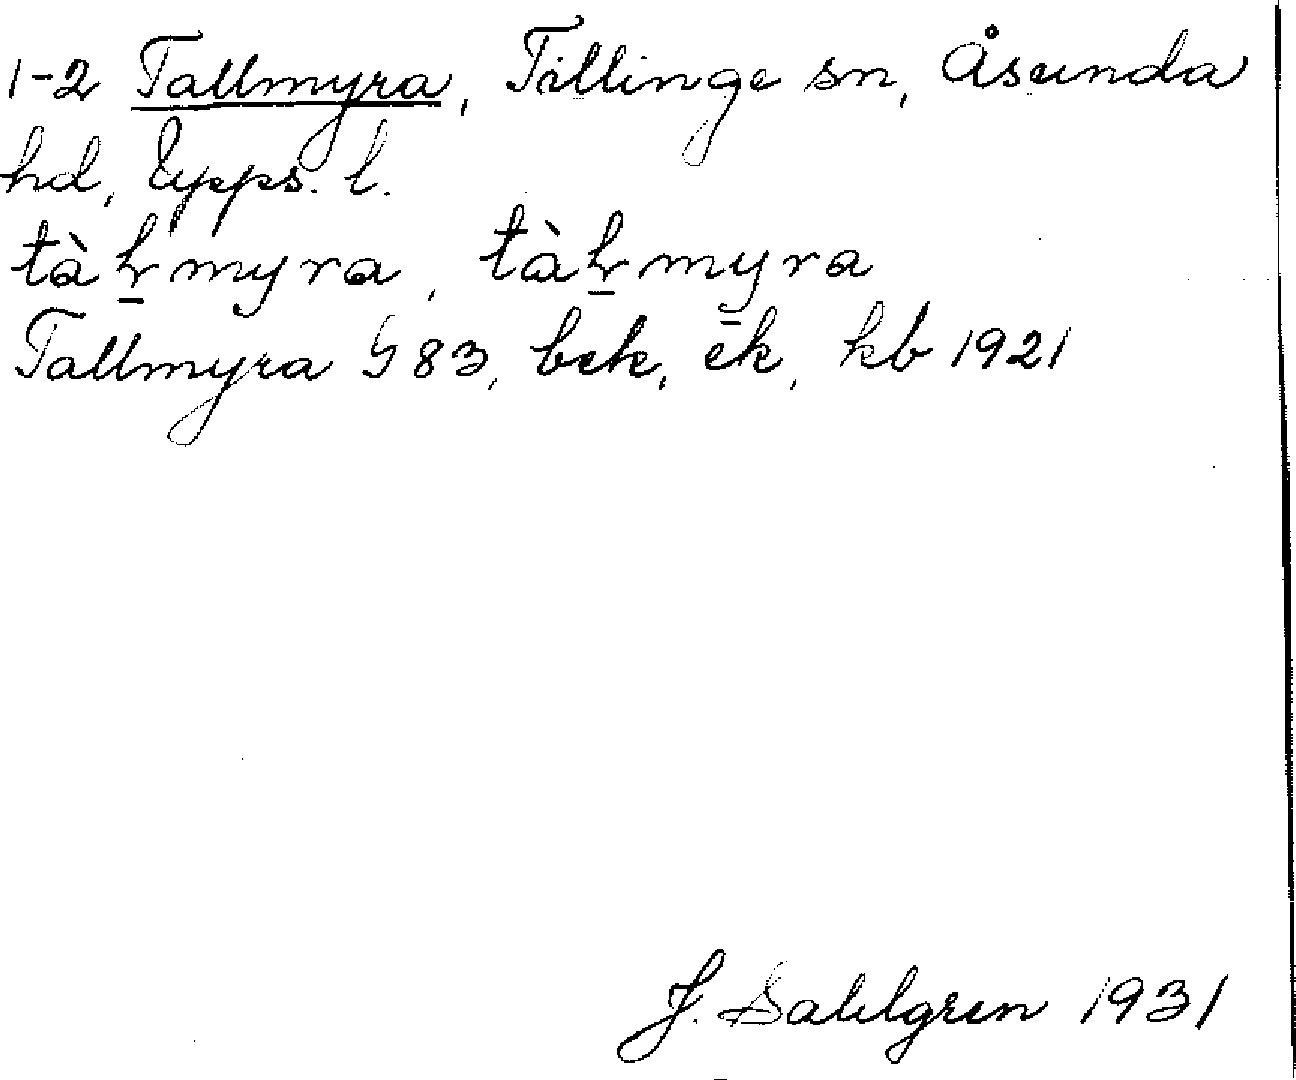 1-2 Tallmyra, Tillinge sn, Åsunda
hd, Upps. l.
tàl̠myra, tàl̠my̠ra
Tallmyra G 83, bek, ek, kb 1921
J. Sahlgren 1931